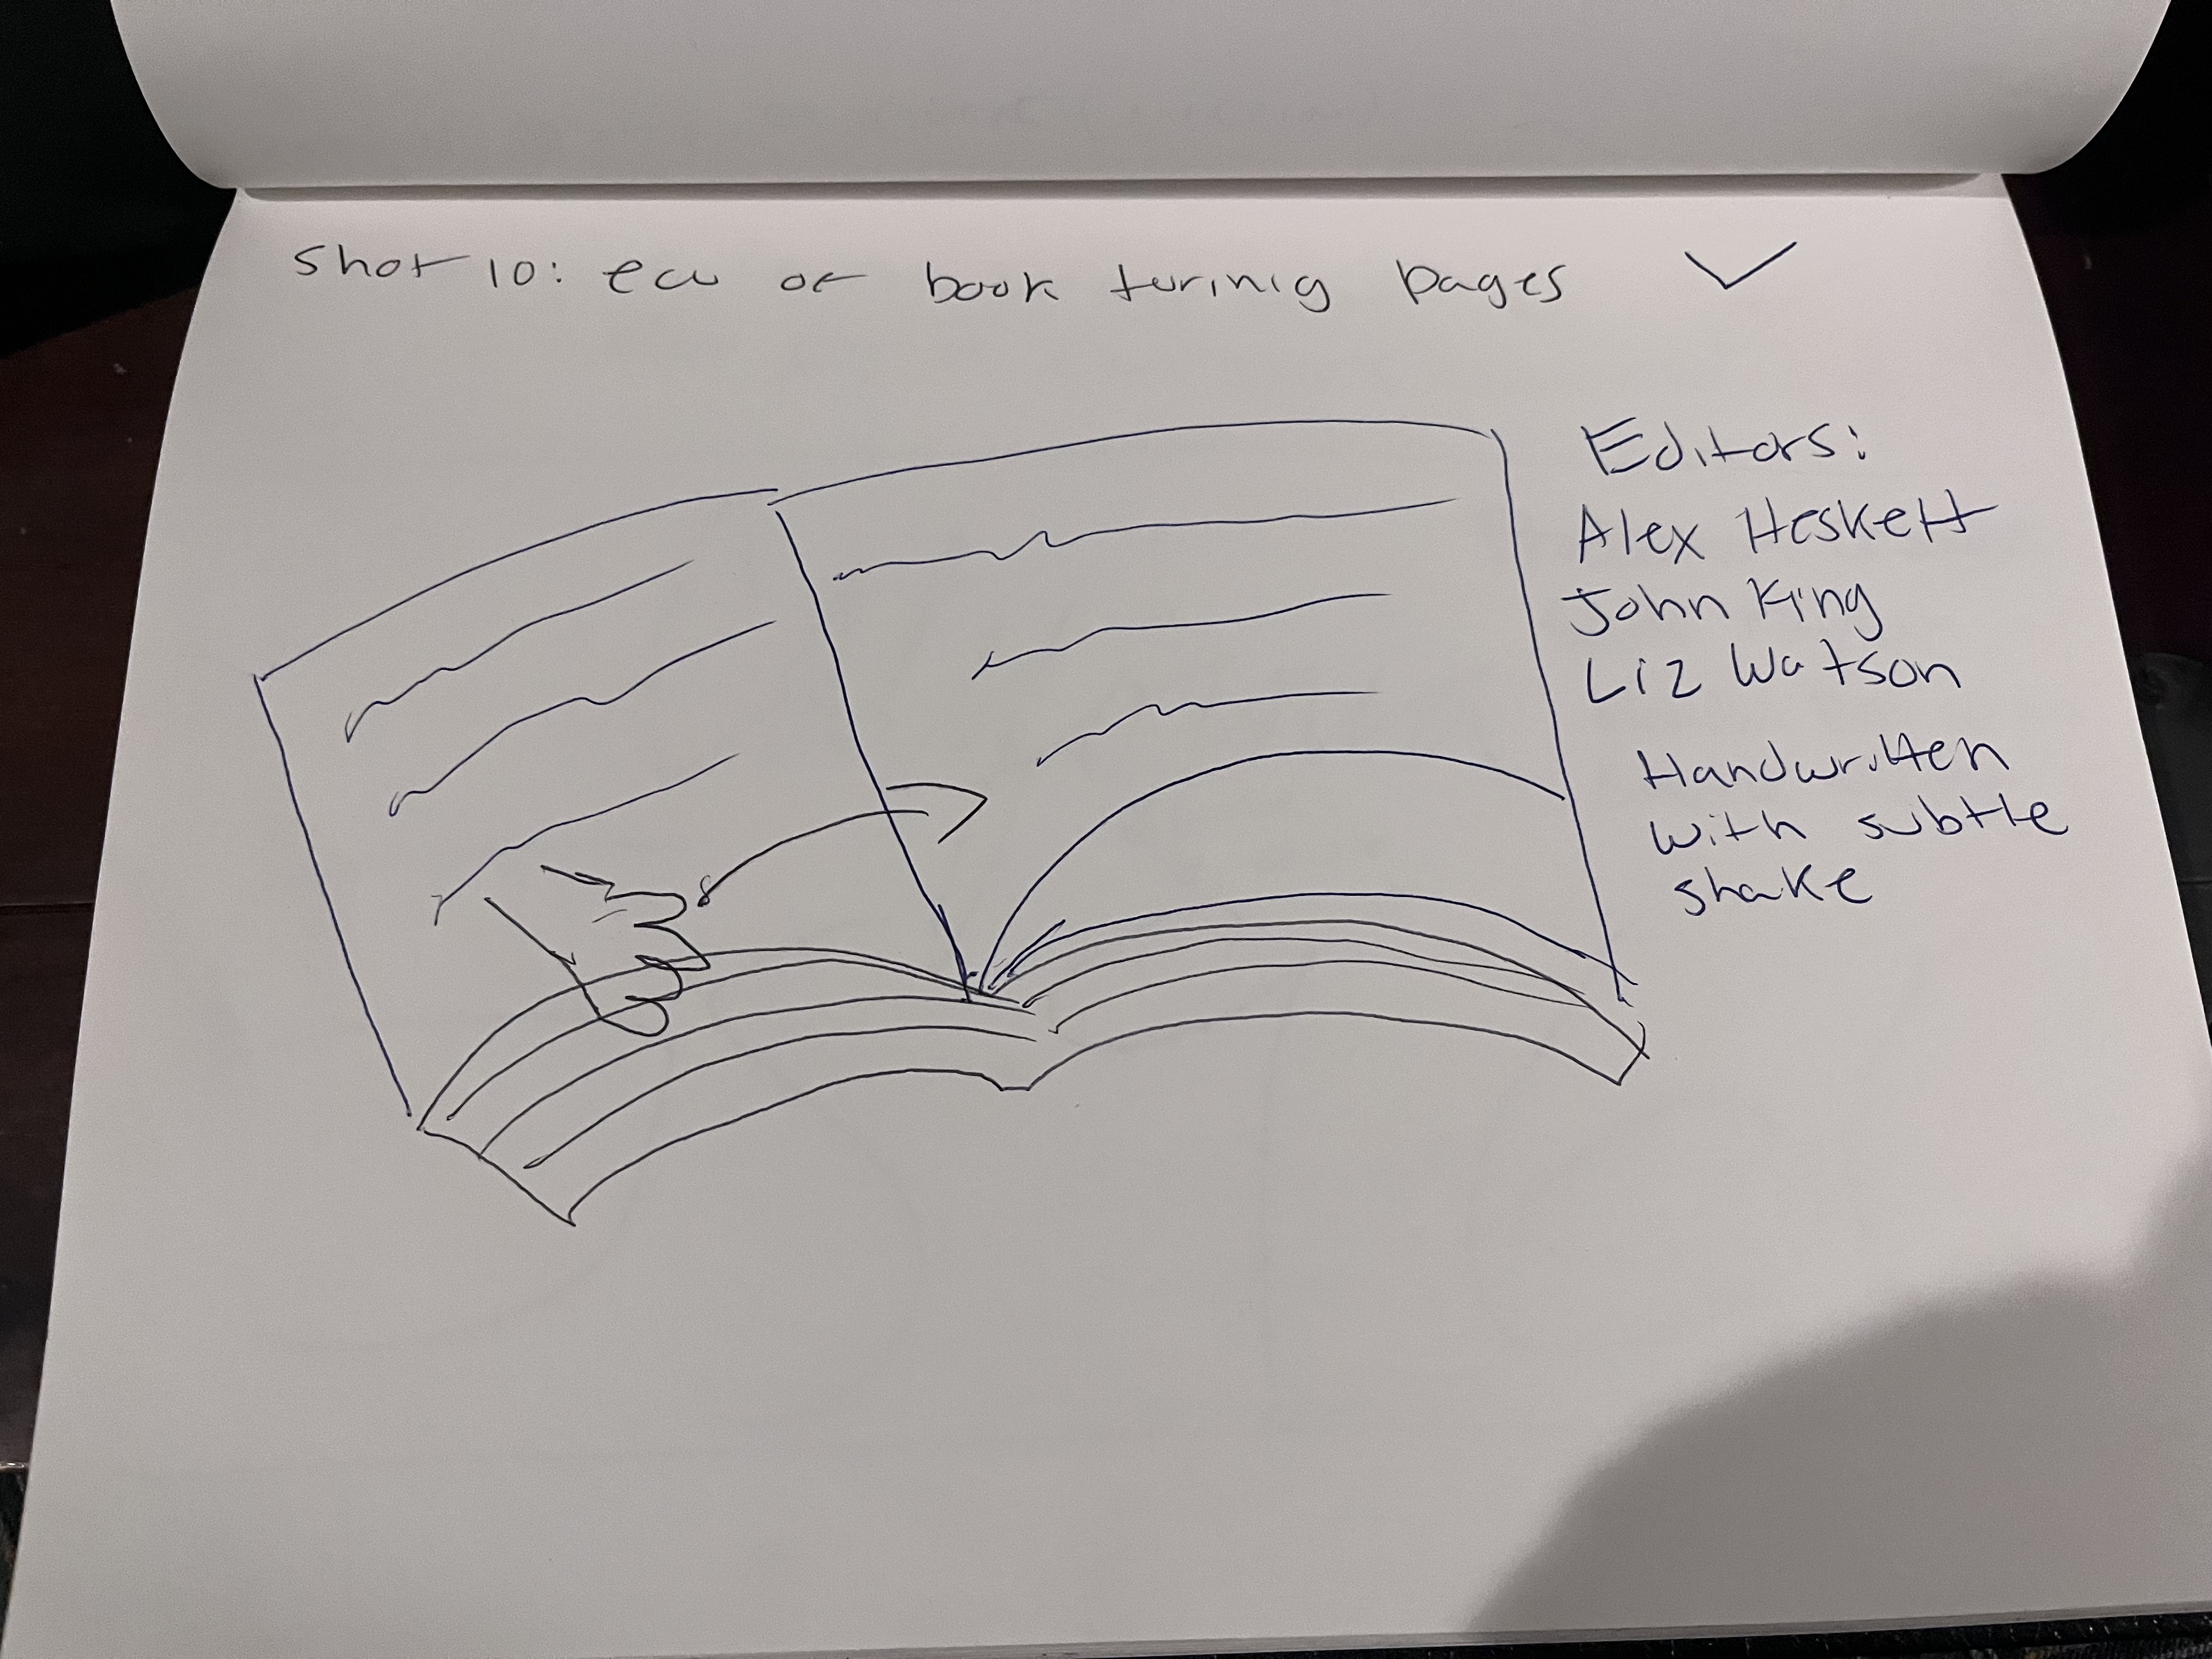 Shot 10: ecu of book turinig pages
Editors:
Alex Heskett
John King
Liz Watson
Handwritten
with subtle
shake